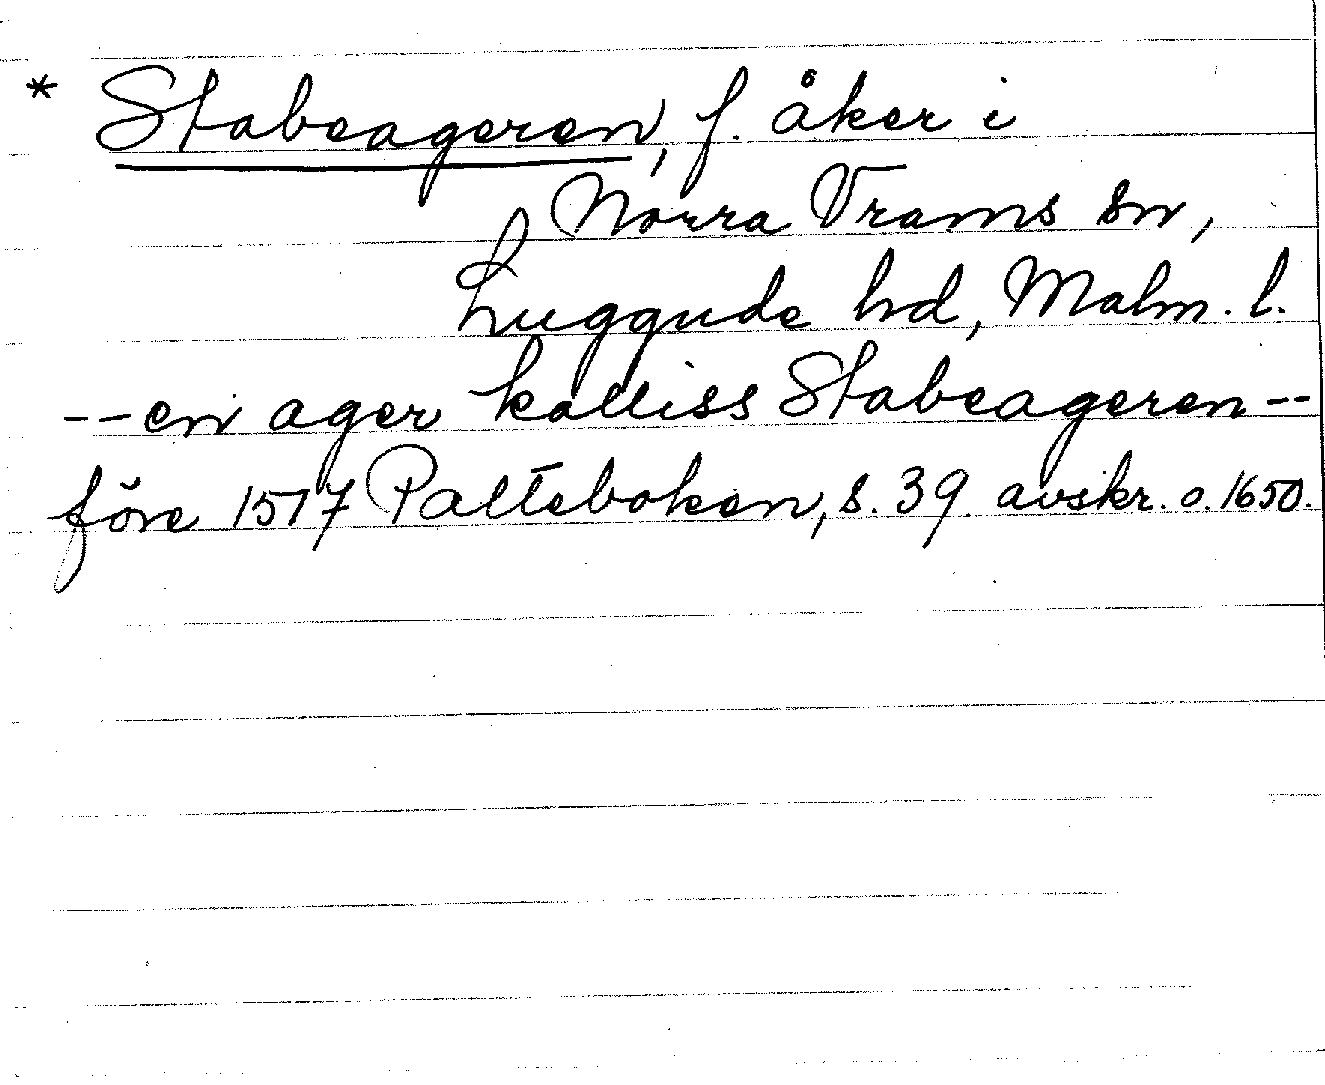 * Stabeageren, f. åker i
Norra Vrams sn,
Luggude hd, Malm. l.
-- en ager kalliss Stabeageren --
före 1517 Palteboken, s. 39. avskr. o. 1650.